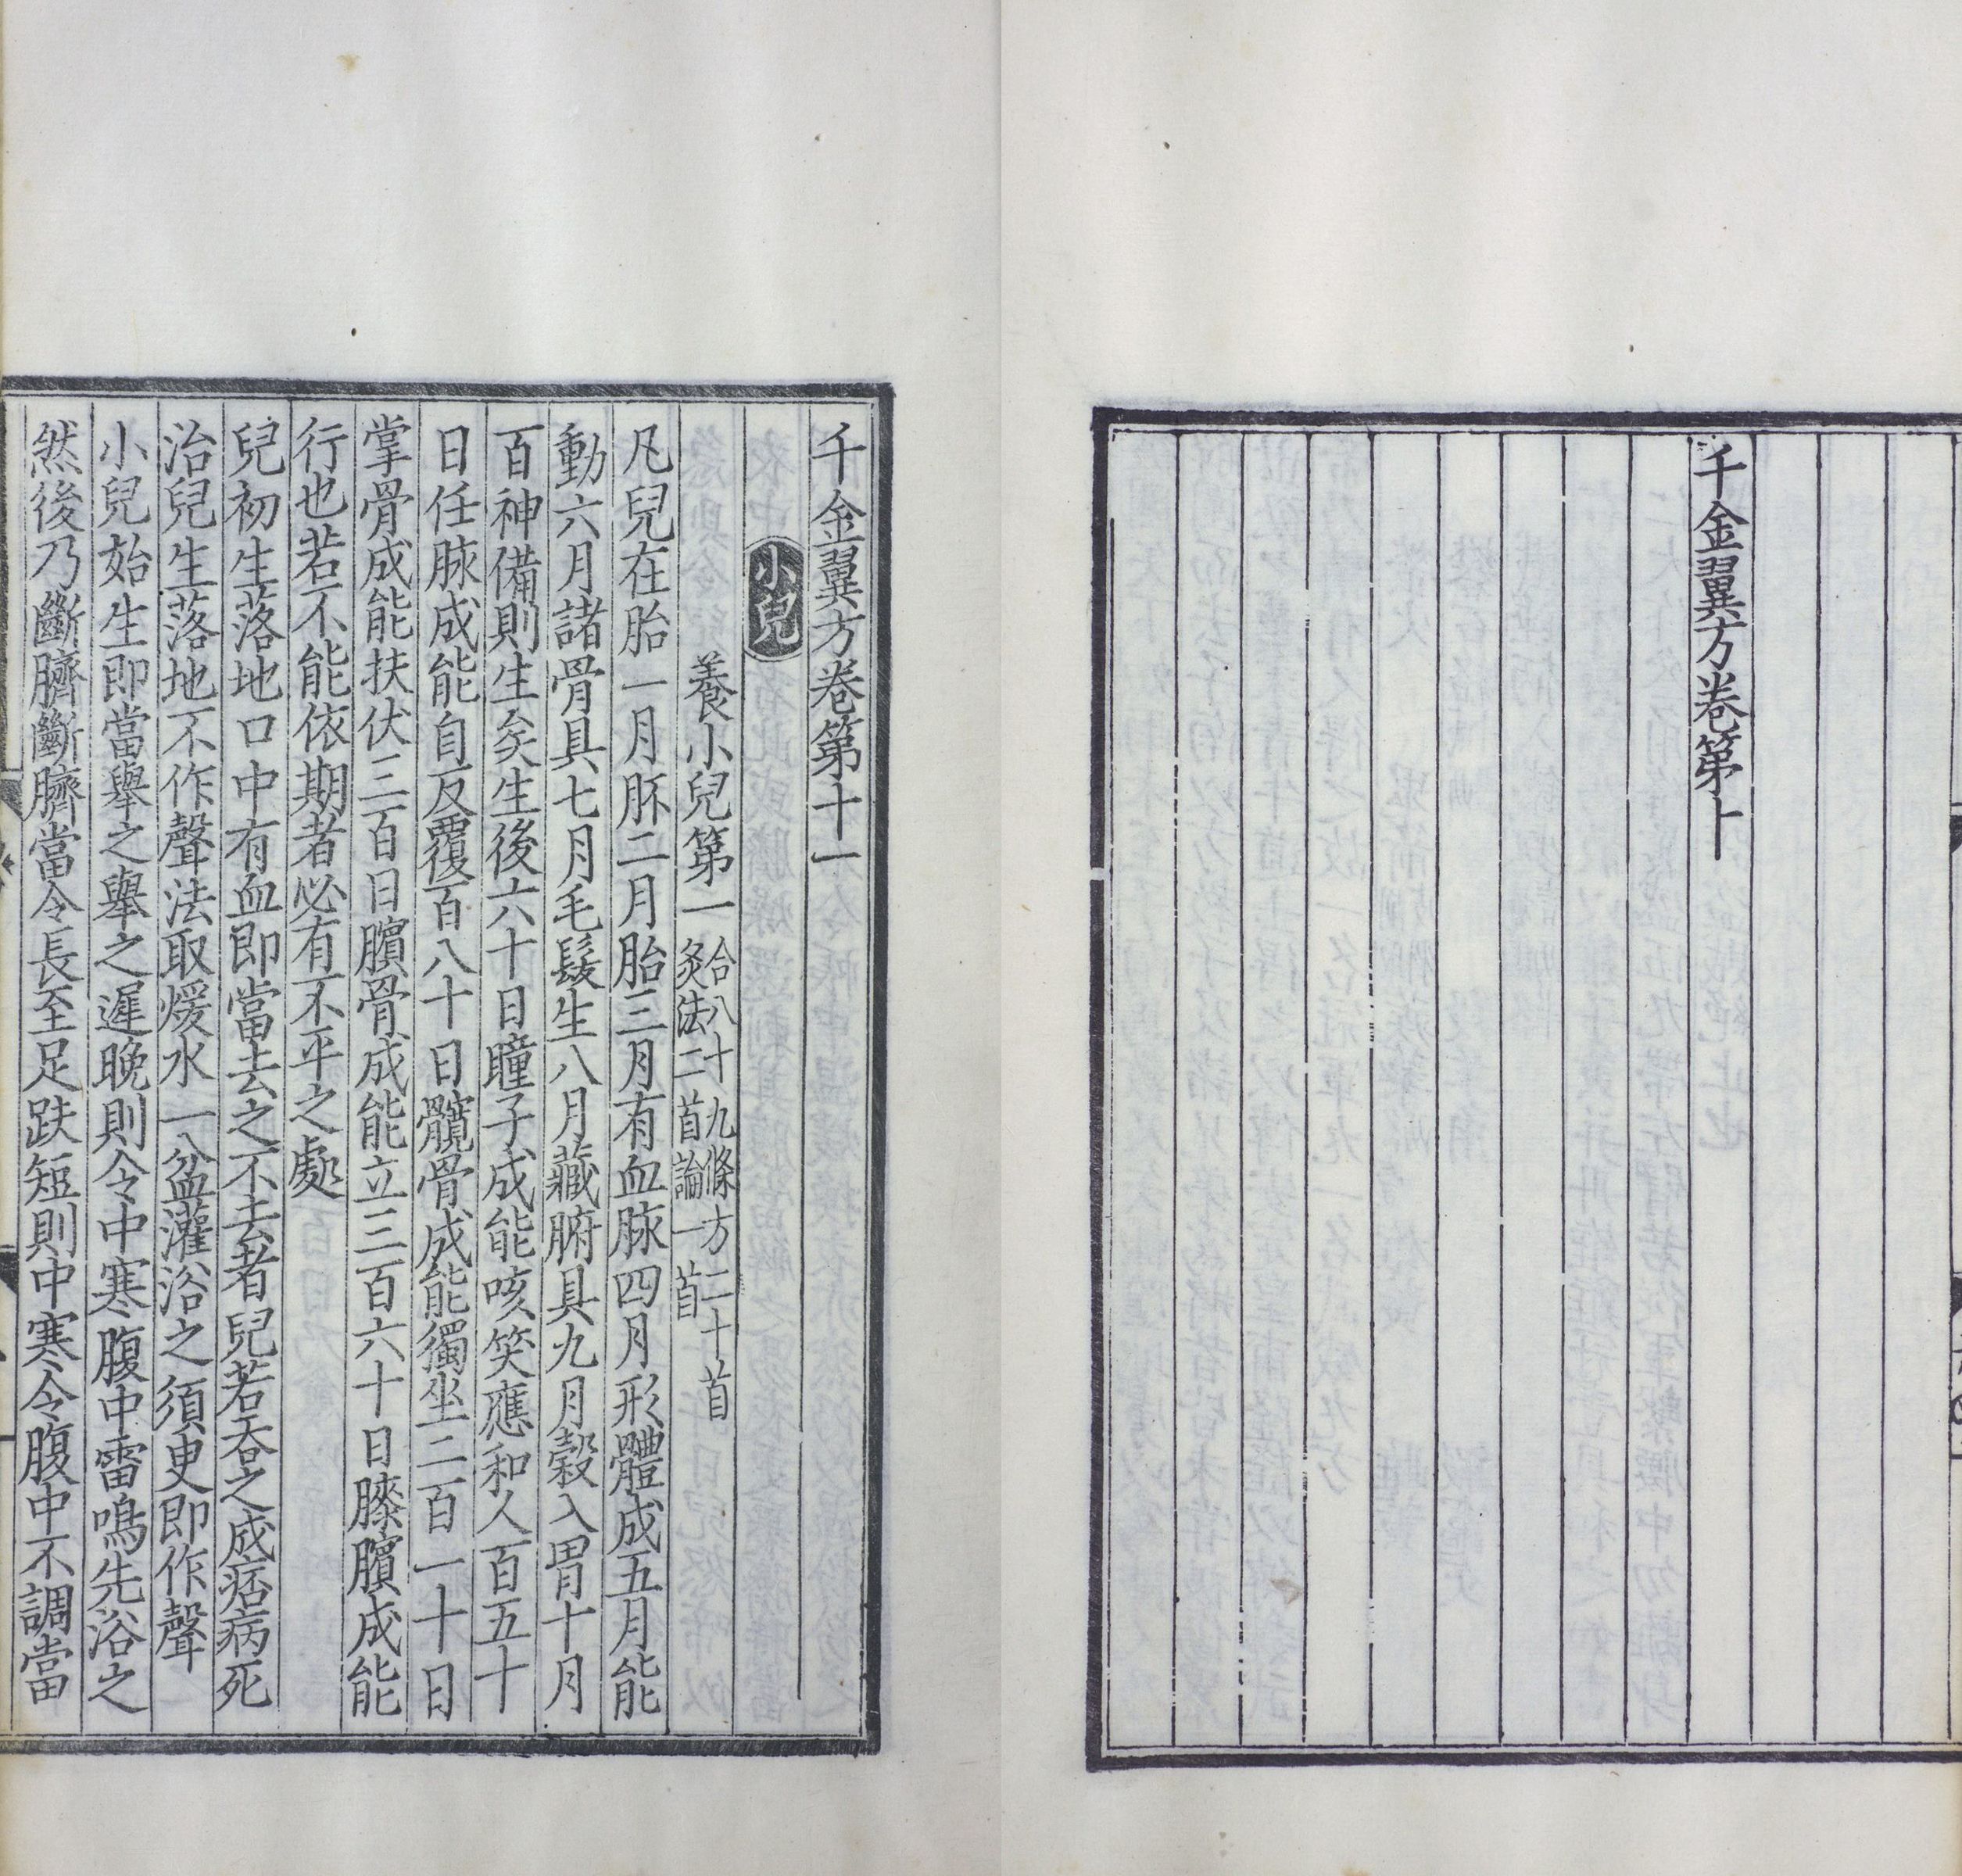 千金翼方卷第十
千金翼方卷第十一
小兒
養小兒第一
合八十九條方二十首
灸法二首論一首
凡兒在胎一月胚二月胎三月有血脉四月形體成五月能
動六月諸骨具七月毛髮生八月藏腑具九月穀入胃十月
百神備則生矣生後六十日瞳子成能咳笑應和人百五十
日任脉成能自反覆百八十日髖骨成能獨坐二百一十日
掌骨成能扶伏三百日臏骨成能立三百六十日膝臏成能
行也若不能依期者必有不平之處
兒初生落地口中有血即當去之不去者兒若吞之成痞病死
治兒生落地不作聲法取煖水一盆灌浴之須臾即作聲
小兒始生即當舉之舉之遲晚則令中寒腹中雷鳴先浴之
然後乃斷臍斷臍當令長至足趺短則中寒令腹中不調當